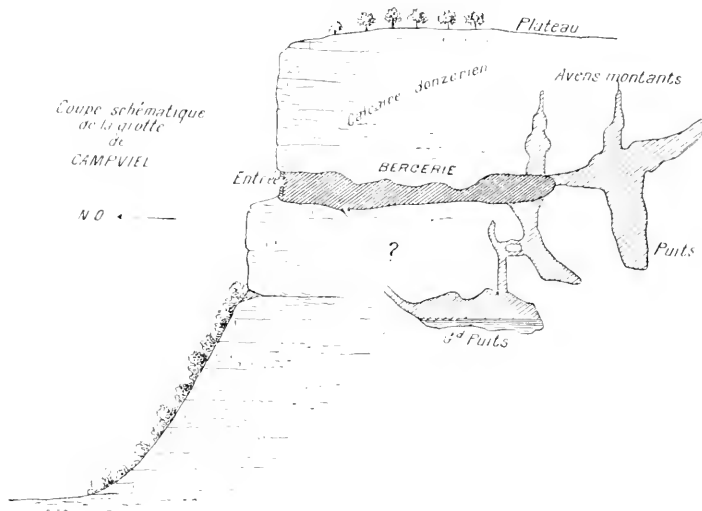 Plateau
Calcaire donzérien
Avens montants
Coupe schématique
de la grotte
de
CAMPVIEL
Entrée
BERGERIE
N O
?
Puits
Gd Puits